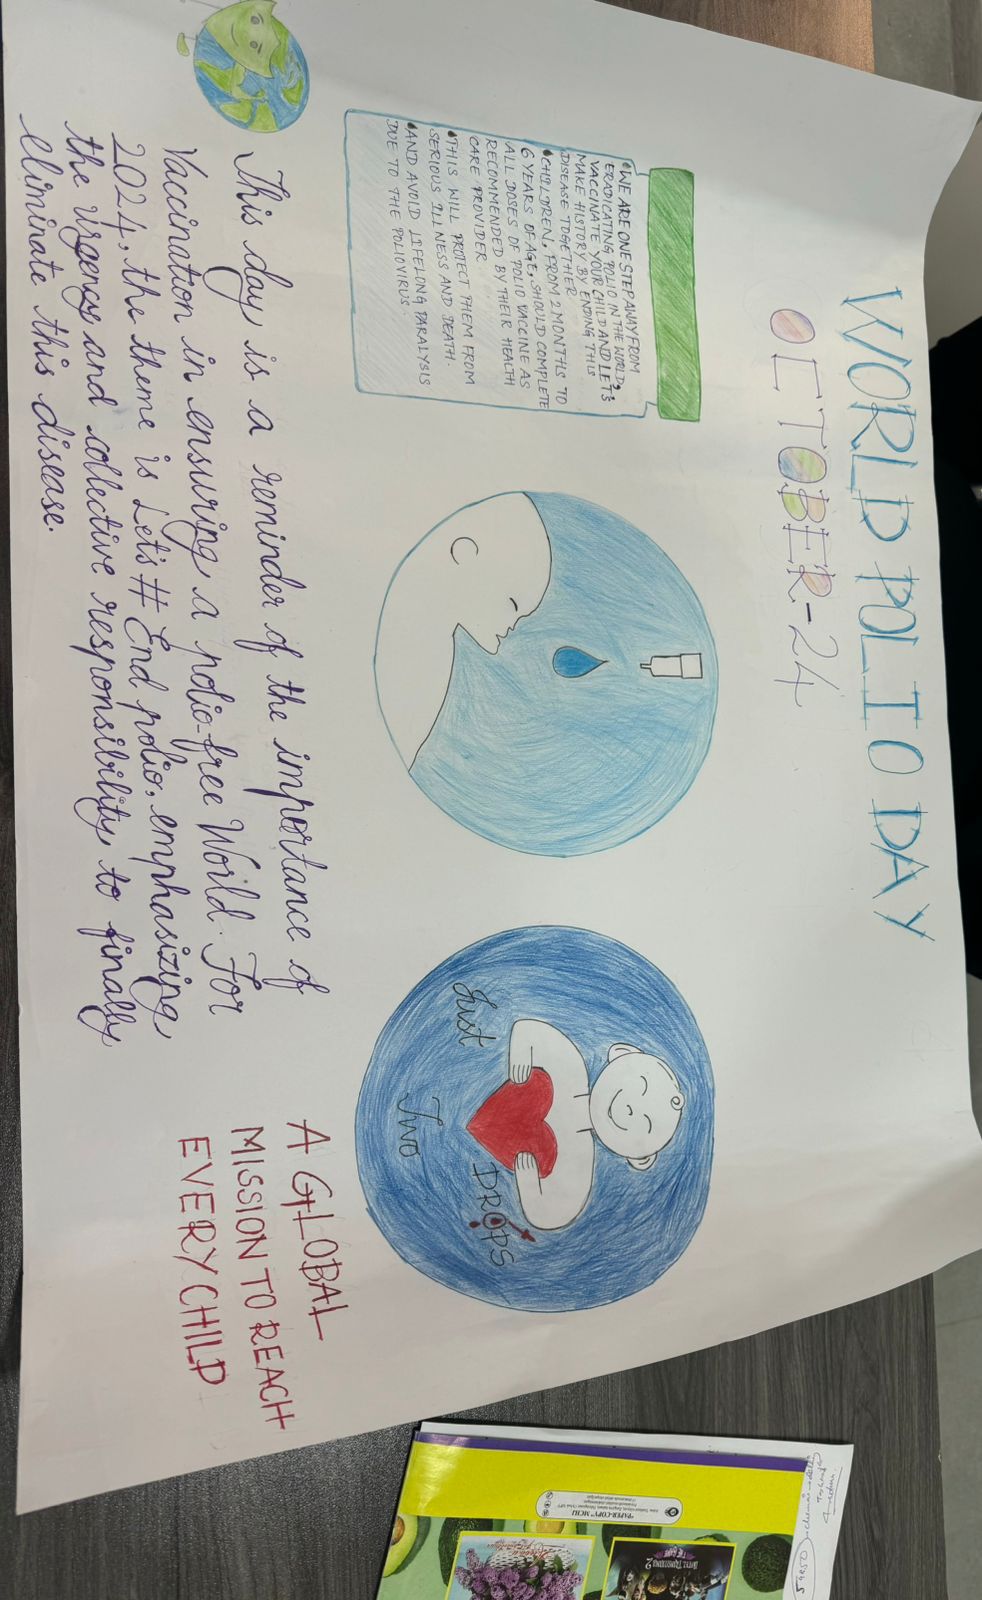 WORLD POLIO DAY
OCTOBER-24
• WE ARE ONE STEP AWAY FROM
ERADICATING POLIO IN THE WORLD.
VACCINATE YOUR CHILD AND LET'S
MAKE HISTORY BY ENDING THIS
DISEASE TOGETHER
• CHILDREN, FROM 2 MONTHS TO
6 YEARS OF AGE, SHOULD COMPLETE
ALL DOSES OF POLIO VACCINE AS
RECOMMENDED BY THEIR HEALTH
CARE PROVIDER.
• THIS WILL PROTECT THEM FROM
SERIOUS ILLNESS AND DEATH.
• AND AVOID LIFELONG PARALYSIS
DUE TO THE POLIOVIRUS.
Just
Two
DROPS
This day is a reminder of the importance of
Vaccination in ensuring a polio-free World. For
2024, the theme is Let's # End polio, emphasizing
the urgency and collective responsibility to finally
eliminate this disease.
A GLOBAL
MISSION TO REACH
EVERY CHILD
"PAPER-COPY" MCHJ
59050